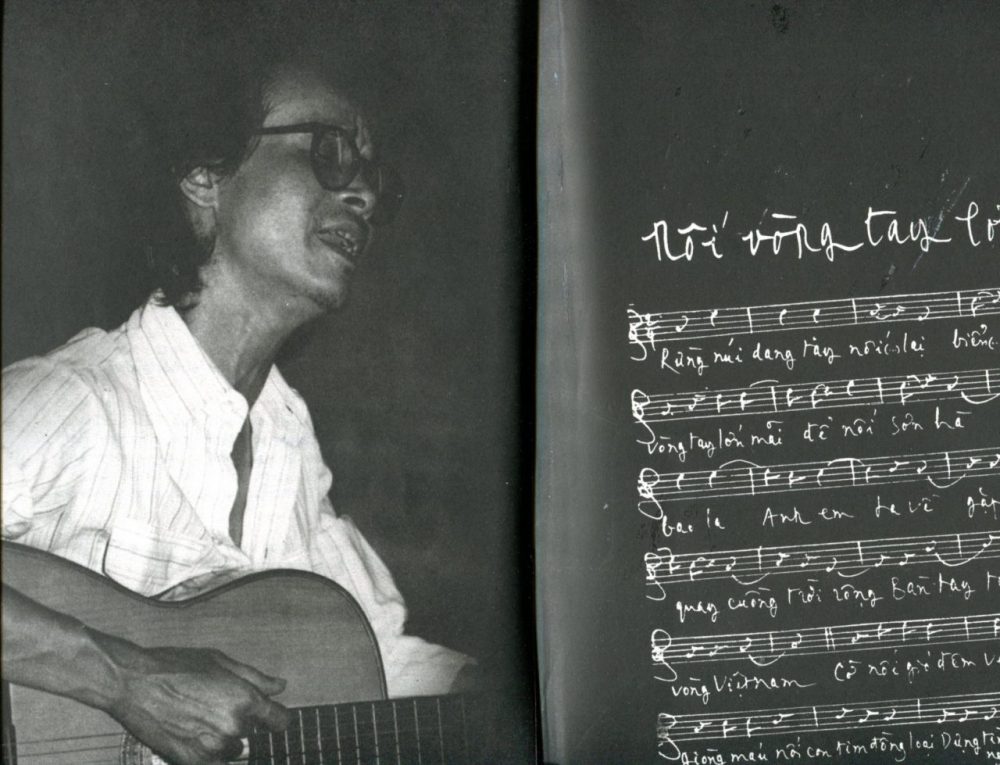 nối vòng tay
Rừng núi dang tay nối lại biển
vòng tay lớn mãi để nối sơn hà
bao la Anh em ta về gặp
quay cuồng trời rộng Bàn tay
vòng Việt nam Cờ nối gió đêm
giòng máu nối con tim đồng loại Dựng